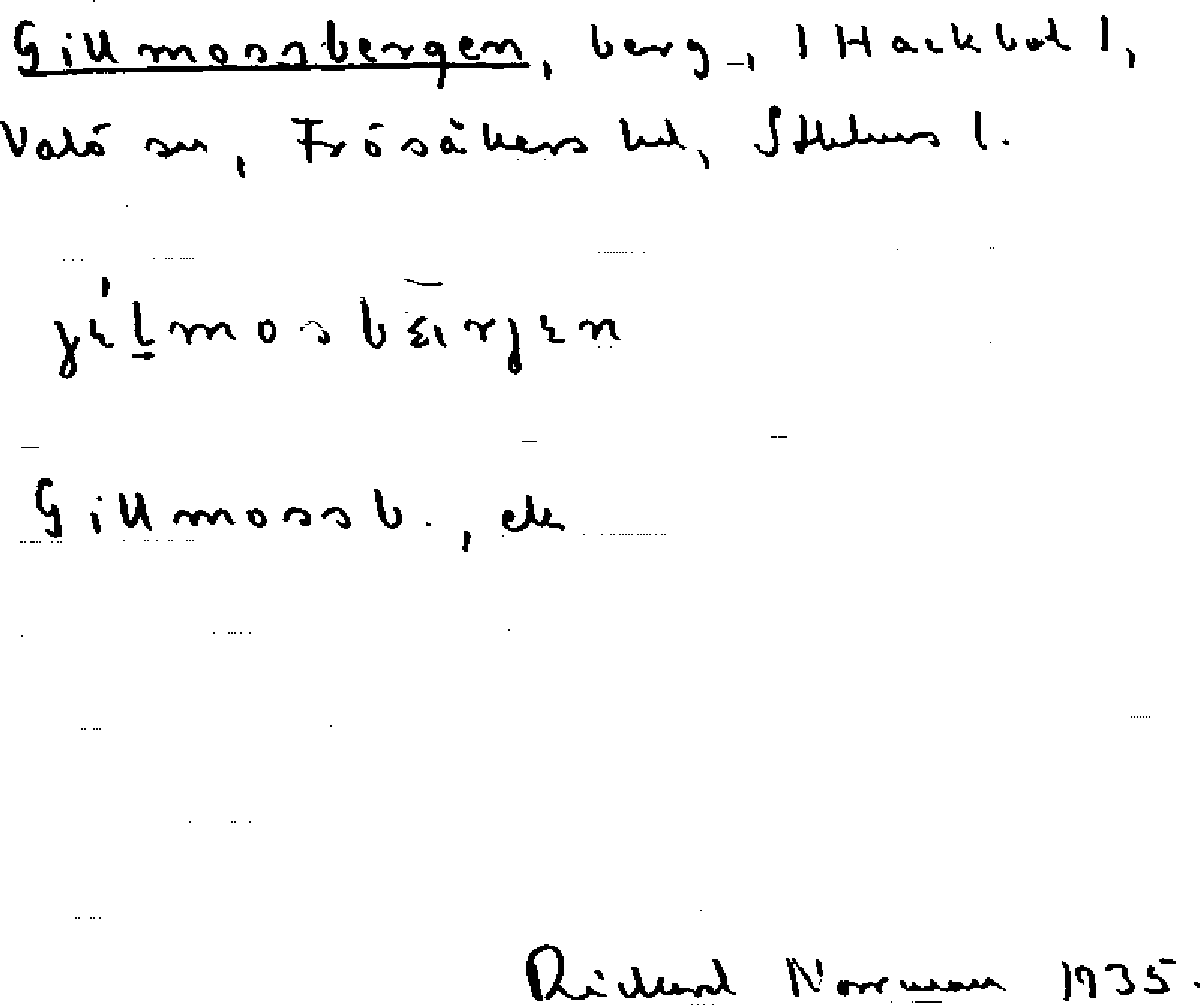 Gillmossbergen, berg, 1 Hackbol 1,
Valö sn, Frösåkers hd, Sthlms l.
Gillmossb., ek
Richard Norrman 1935.